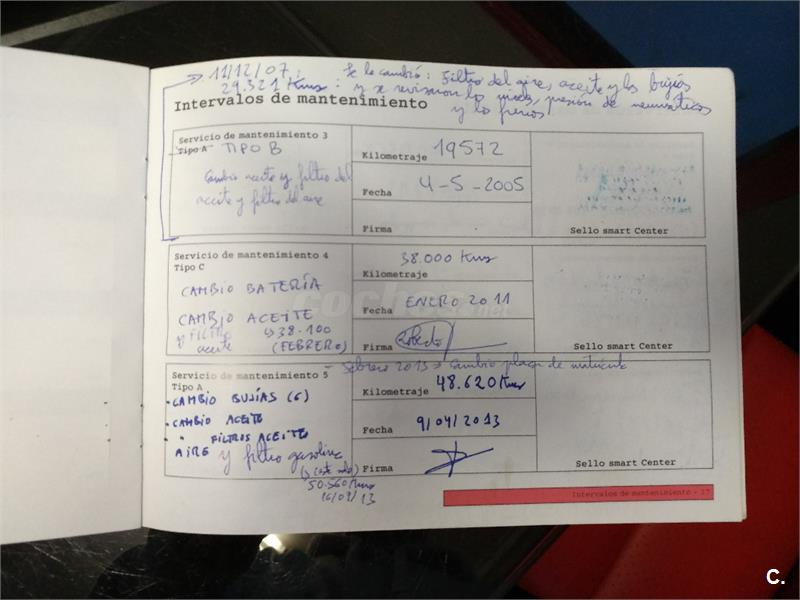 11/12/07 : Se le cambió: Filtro del aire, aceite y las bujías
29.321 Kms : y se revisaron los niveles, presión de neumáticos
y los frenos
Intervalos de mantenimiento
Servicio de mantenimiento 3
Tipo A TIPO B
Cambio aceite y filtro del
aceite y filtro del aire
Kilometraje 19572
Fecha 4-5-2005
Firma
Sello smart Center
Servicio de mantenimiento 4
Tipo C
CAMBIO BATERÍA
CAMBIO ACEITE
y FILTRO
aceite
↳ 38.100
(FEBRERO)
38.000 Kms
Kilometraje
Fecha ENERO 2011
Firma Roberto
Sello smart Center
- Febrero 2013 → Cambio placa de matrícula
Servicio de mantenimiento 5
Tipo A
• CAMBIO BUJÍAS (6)
• CAMBIO ACEITE
• " FILTROS ACEITE
AIRE y filtro gasolina
50.560 Kms
16/09/13
Kilometraje 48.620 Kms
Fecha 9/04/2013
Firma
Sello smart Center
Intervalos de mantenimiento - 17
coches
C.